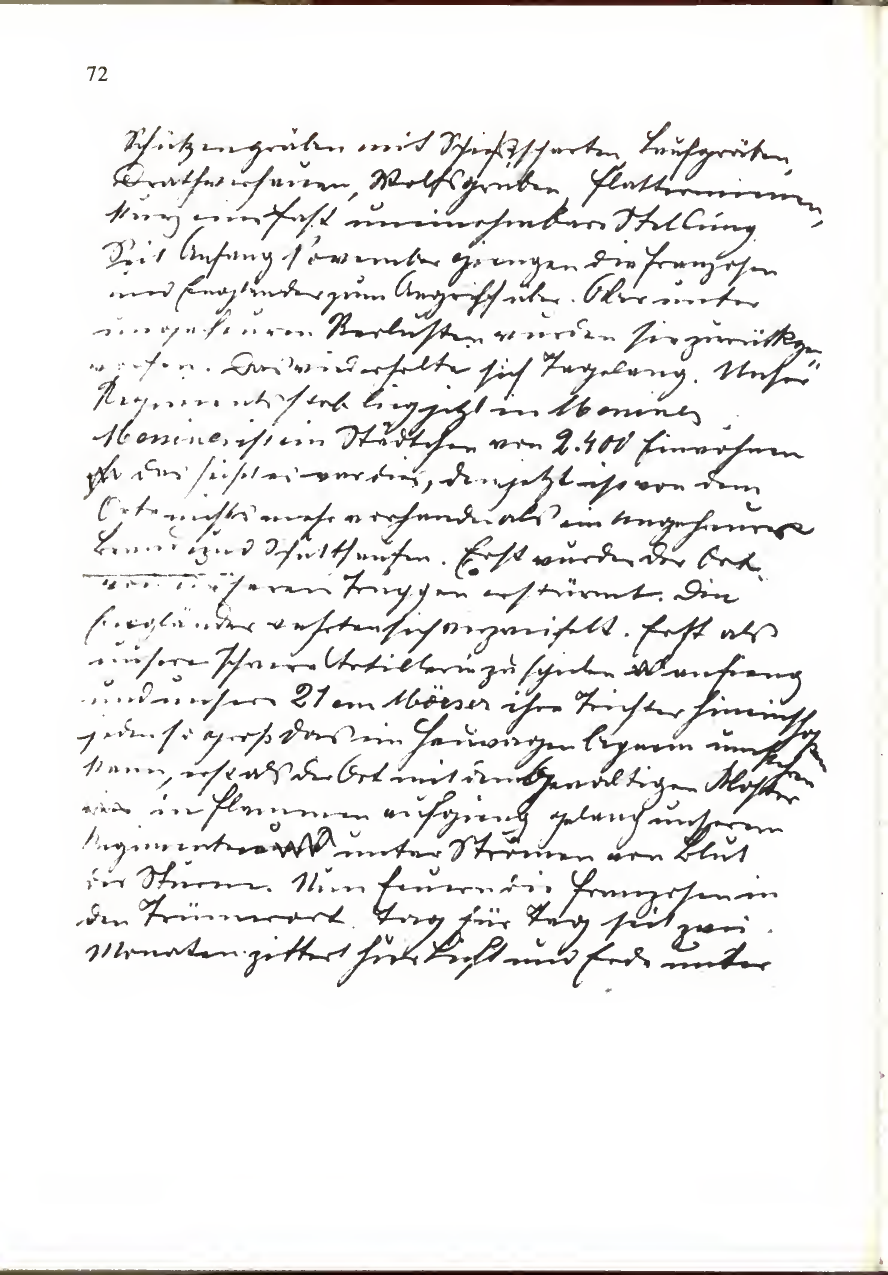 72
Schützengräben mit Schießscharten, Laufgräben,
Drathverhauen, Wolfsgruben, Flatterminen,
kurz eine fast uneinehmbare Stellung.
Seit Anfang November giengen die Franzosen
und Engländer zum Angriff über. Aber unter
ungeheuren Verlusten wurden sie zurückge
worfen. Das wiederholte sich Tagelang. Unser
Regimentsstab liegt jetzt in Messines
Messines ist ein Städtchen von 2.400 Einwohnern
das heißt es war dies, den jetzt ist von dem
Orte nichts mehr vorhanden als ein ungeheurer
Brand und Schutthaufen. Erst wurde der Ort
von unseren Truppen erstürmt. Die
Engländer wehrten sich verzweifelt. Erst als
unsere schwere Artillerie zu spielen anfieng
und unsere 21 cm Mörser ihre Trichter hineinschossen
jeden so groß das ein Heuwagen bequem umkehren
kann, erst als der Ort mit dem gewaltigen Kloster
in Flammen aufgieng gelang unseren
Regimentern unter Strömen von Blut
der Sturm. Nun feuern die Franzosen in
den Trümmerort. Tag für Tag seit zwei
Monaten zittert hier Luft und Erde unter